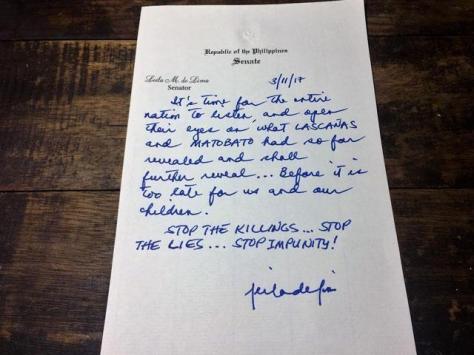 Republic of the Philippines
Senate
Leila M. de Lima
Senator
3/11/17
It's time for the entire
nation to listen, and open
their eyes on what LASCAÑAS
and MATOBATO had so far
revealed and shall
further reveal... Before it is
too late for us and our
children.
STOP THE KILLINGS... STOP
THE LIES... STOP IMPUNITY!